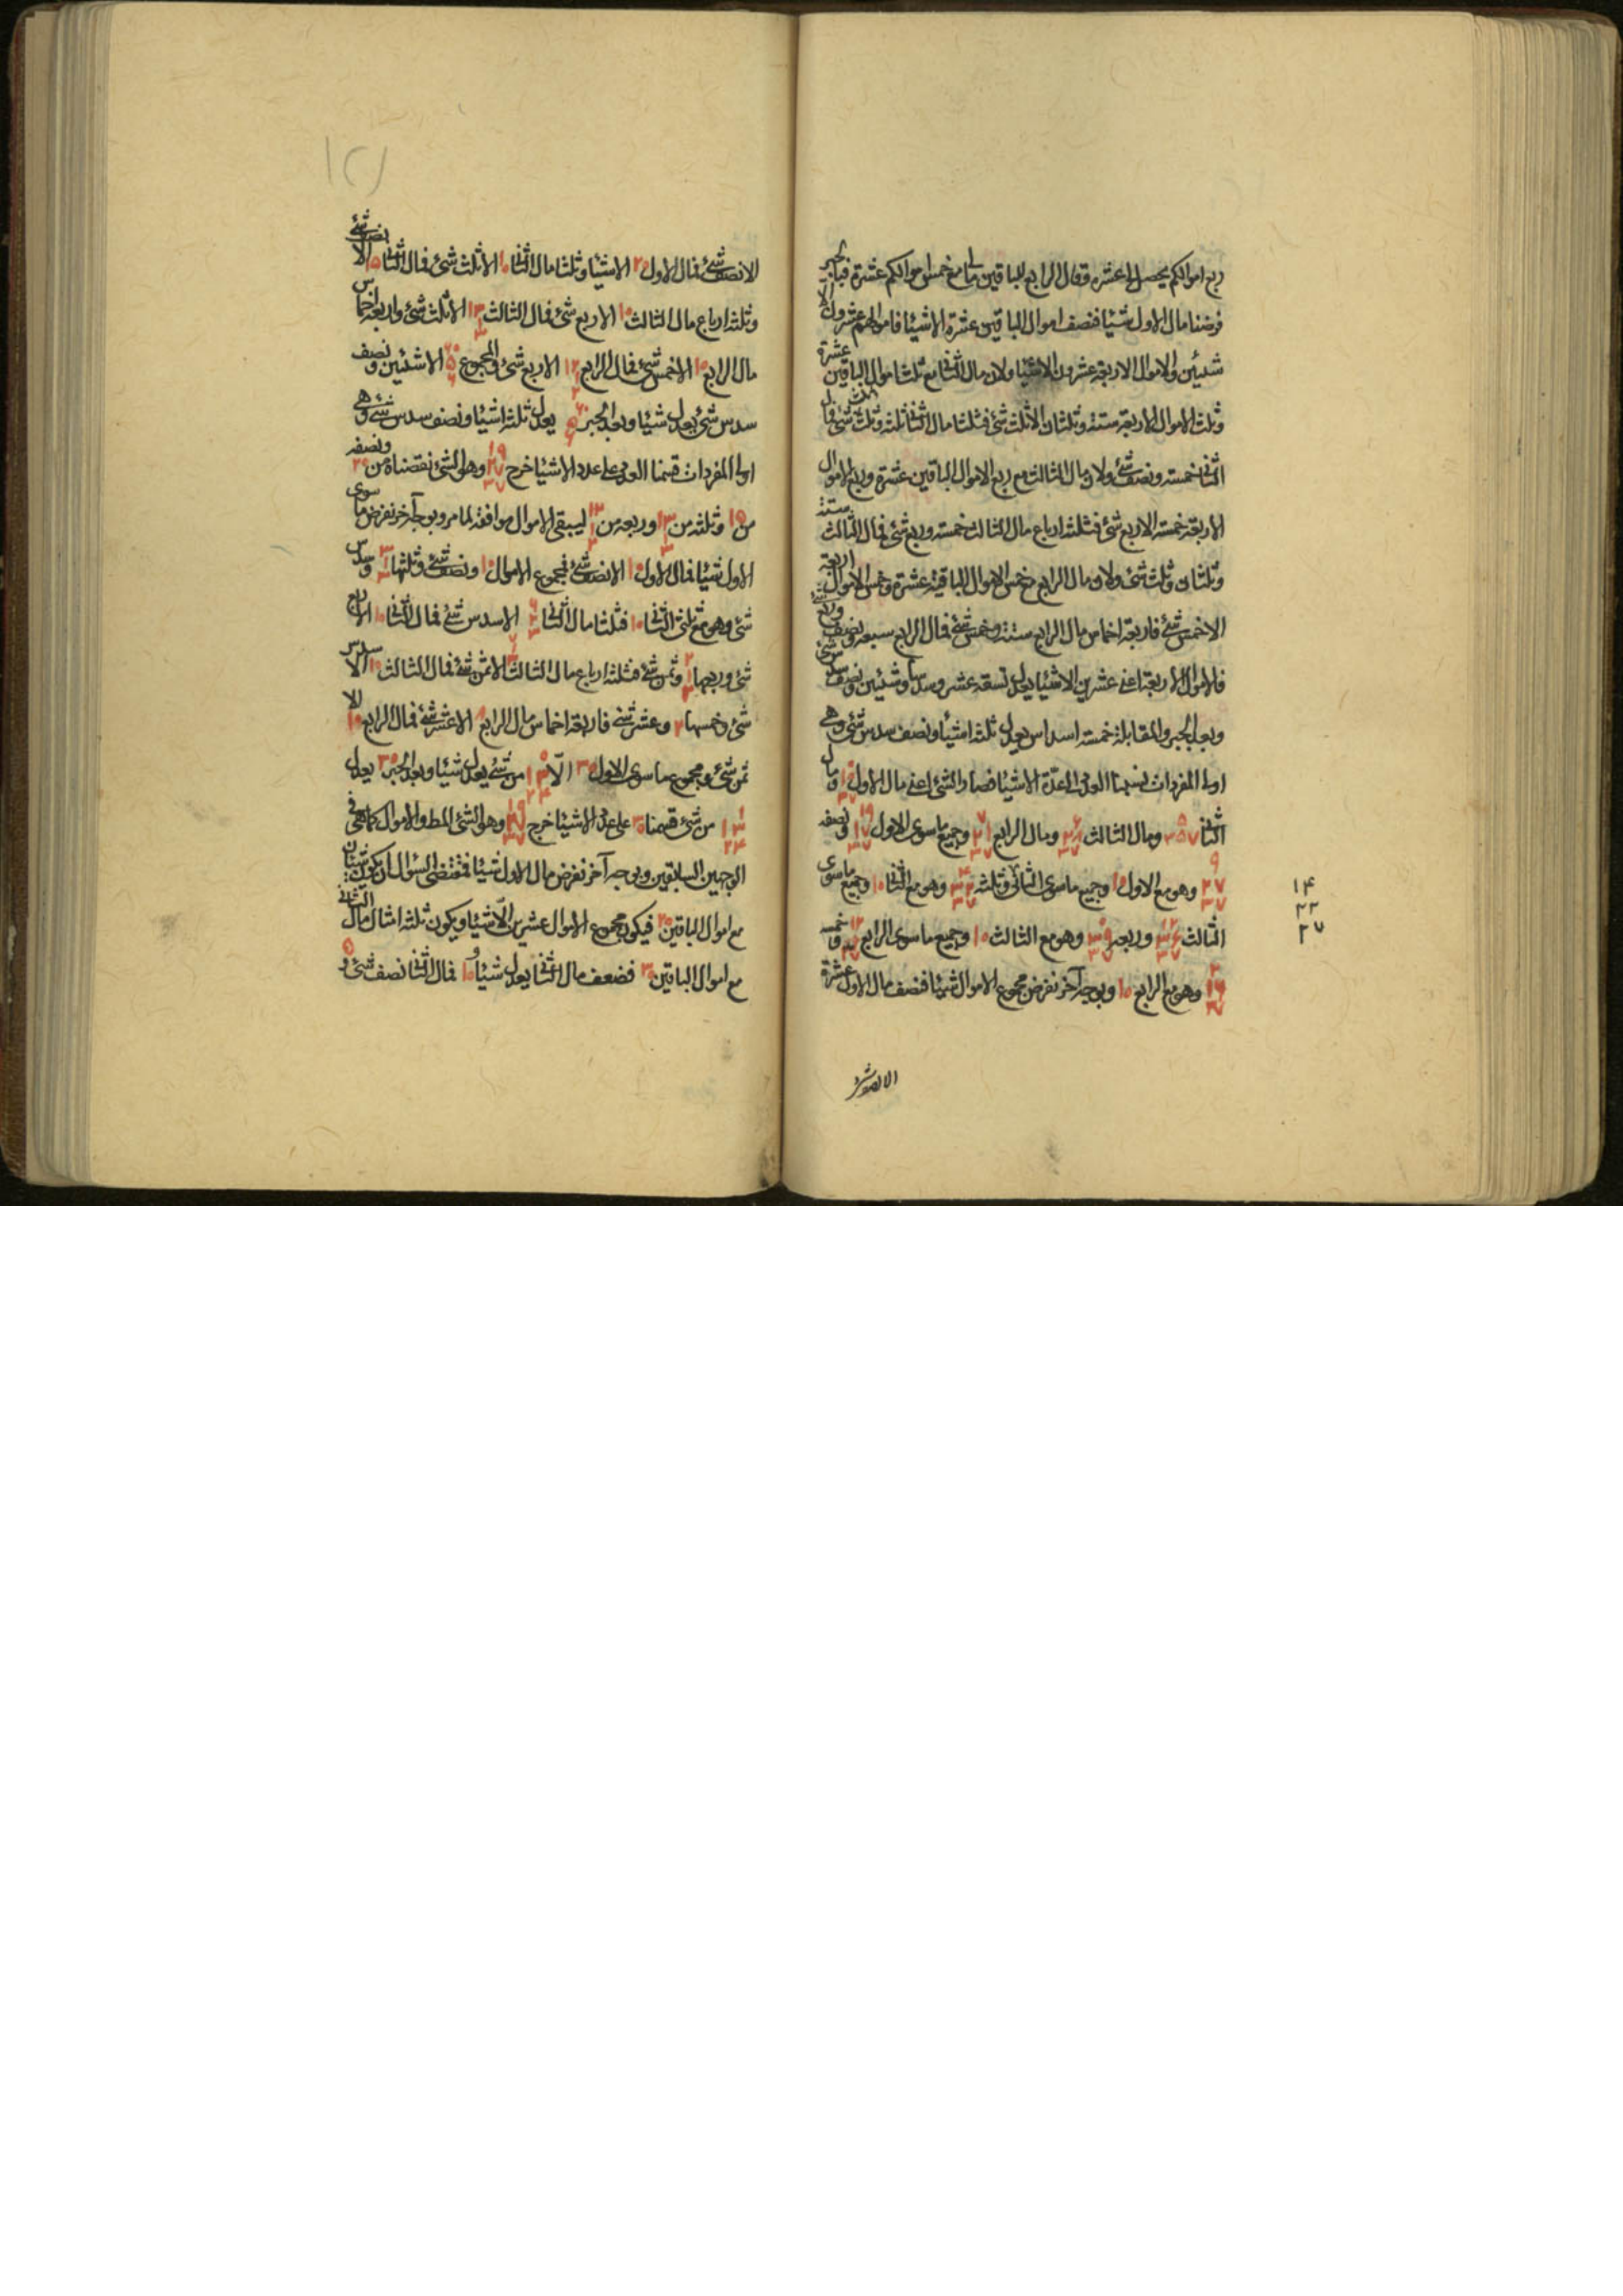 ربع اموالكم يحصل لى عشرة وقال الرابع للباقين مالى مع خمس اموالكم عشرة فبالجبر
فرضنا مال الاول شيئا فنصف اموال الباقين عشرة الا شيئا فاموالهم عشرون الا
شيئين والاموال الاربعة عشرون الا شيئا ولان مال الثانى مع ثلث اموال الباقين عشرة
وثلث الاموال الاربعة ستة وثلثان الا ثلث شئ فثلثا مال الثانى ثلثة وثلث وثلث شئ فمال
الثانى خمسة ونصف شئ ولان مال الثالث مع ربع الاموال الباقين عشرة وربع الاموال
الاربعة خمسة الا ربع شئ فثلثة ارباع مال الثالث خمسة وربع شئ فمال الثالث ستة
وثلثان وثلث شئ ولان مال الرابع مع خمس الاموال الباقية عشرة وخمس الاموال اربعة
الا خمس شئ فاربعة اخماس مال الرابع ستة وخمس شئ فمال الرابع سبعة ونصف وربع شئ
فالاموال الاربعة اعنى عشرين الا شيئا يعدل تسعة عشر وسدسا وشيئين ونصف سدس شئ
وبعد الجبر والمقابلة خمسة اسداس يعدل ثلثة اشيئا ونصف سدس شئ وهى
اولى المفردات قسمنا العدد على عدة الاشيئا فصار الشئ اعنى مال الاول ١٠ ٣٧ ومال
الثانى ٥ ٥ ٣٧ ومال الثالث ٦ ٢٨ ٣٧ ومال الرابع ٧ ٢١ ٣٧ وجميع ما سوى الاول ١٩ ١٧ ٣٧ ونصفه
٩ ٢٧ ٣٧ وهو مع الاول ١٠ وجميع ما سوى الثانى وثلثه وهو مع الثانى ١٠ وجميع ما سوى
الثالث وربعه وهو مع الثالث ١٠ وجميع ما سوى الرابع وخمسه
٢ ١٦ ٣٧ وهو مع الرابع ١٠ وبوجه آخر نفرض مجموع الاموال شيئا فنصف مال الاول عشرة
١٤
٢٢
٢٧
الا نصف شئ
الا نصف شئ فمال الاول ٢٠ الا شيئا وثلثا مال الثانى ١٠ الا ثلث شئ فمال الثانى ١٥ الا نصف شئ
وثلثة ارباع مال الثالث ١٠ الا ربع شئ فمال الثالث ١٣ ١ ٣ الا ثلث شئ واربعة اخماس
مال الرابع ١٠ الا خمس شئ فمال الرابع ١٢ ١ ٢ الا ربع شئ والمجموع ٦٠ ٥ ٦ الا شيئين ونصف
سدس شئ يعدل شيئا وبعد الجبر ٦٠ ٥ ٦ يعدل ثلثة اشيئا ونصف سدس شئ وهى
اولى المفردات قسمنا العدد على عدد الاشيئا خرج ١٩ ٢٧ ٣٧ وهو الشئ نقصناه من ٢٠ ونصفه
من ١٥ وثلثه من ١٣ ١ ٣ وربعه من ١٢ ١ ٢ ليبقى الاموال موافقة لما مر وبوجه آخر نفرض ما سوى
الاول شيئا فمال الاول ١٠ الا نصف شئ فمجموع الاموال ١٠ ونصف شئ وثلثها ٣ ١ ٣ وسدس
شئ وهو مع ثلثى الثانى ١٠ فثلثا مال الثانى ٦ ٢ ٣ الا سدس شئ فمال الثانى ١٠ الا ربع
شئ وربعها ٢ ١ ٢ وثمن شئ فثلثة ارباع مال الثالث ٧ ١ ٢ الا ثمن شئ فمال الثالث ١٠ الا سدس
شئ وخمسها ٢ وعشر شئ فاربعة اخماس مال الرابع ٨ الا عشر شئ فمال الرابع ١٠ الا
ثمن شئ ومجموع ما سوى الاول ٣٠ الا ١٣ ٢٤ من شئ يعدل شيئا وبعد الجبر ٣٠ يعدل
١ ١٣ ٢٤ من شئ قسمنا ٣٠ على عدد الاشيئا خرج ١٩ ١٧ ٣٧ وهو الشئ المط والاموال كما هى فى
الوجهين السابقين وبوجه آخر نفرض مال الاول شيئا فمقتضى السؤال ان يكون شيئان
مع اموال الباقين ٢٠ فيكون مجموع الاموال عشرين الا شيئا ويكون ثلثة امثال مال الثانى
مع اموال الباقين ٣٠ فضعف مال الثانى يعدل شيئا و١٠ فمال الثانى نصف شئ و ٥